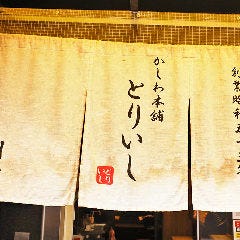 創業昭和
かしわ本舗
とりいし
とり
いし